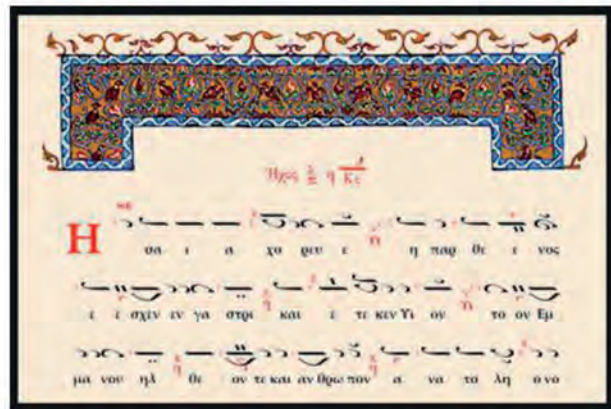 Ἦχος π̈ λ η Κε
Η σα ι α χο ρευ ε η παρ θε ε νος
ε ε σχεν εν γα στρι και ε τε κεν Υι ον το ον Εμ
μα νου ηλ θε ον τε και αν θρω πον α να το λη ο νο